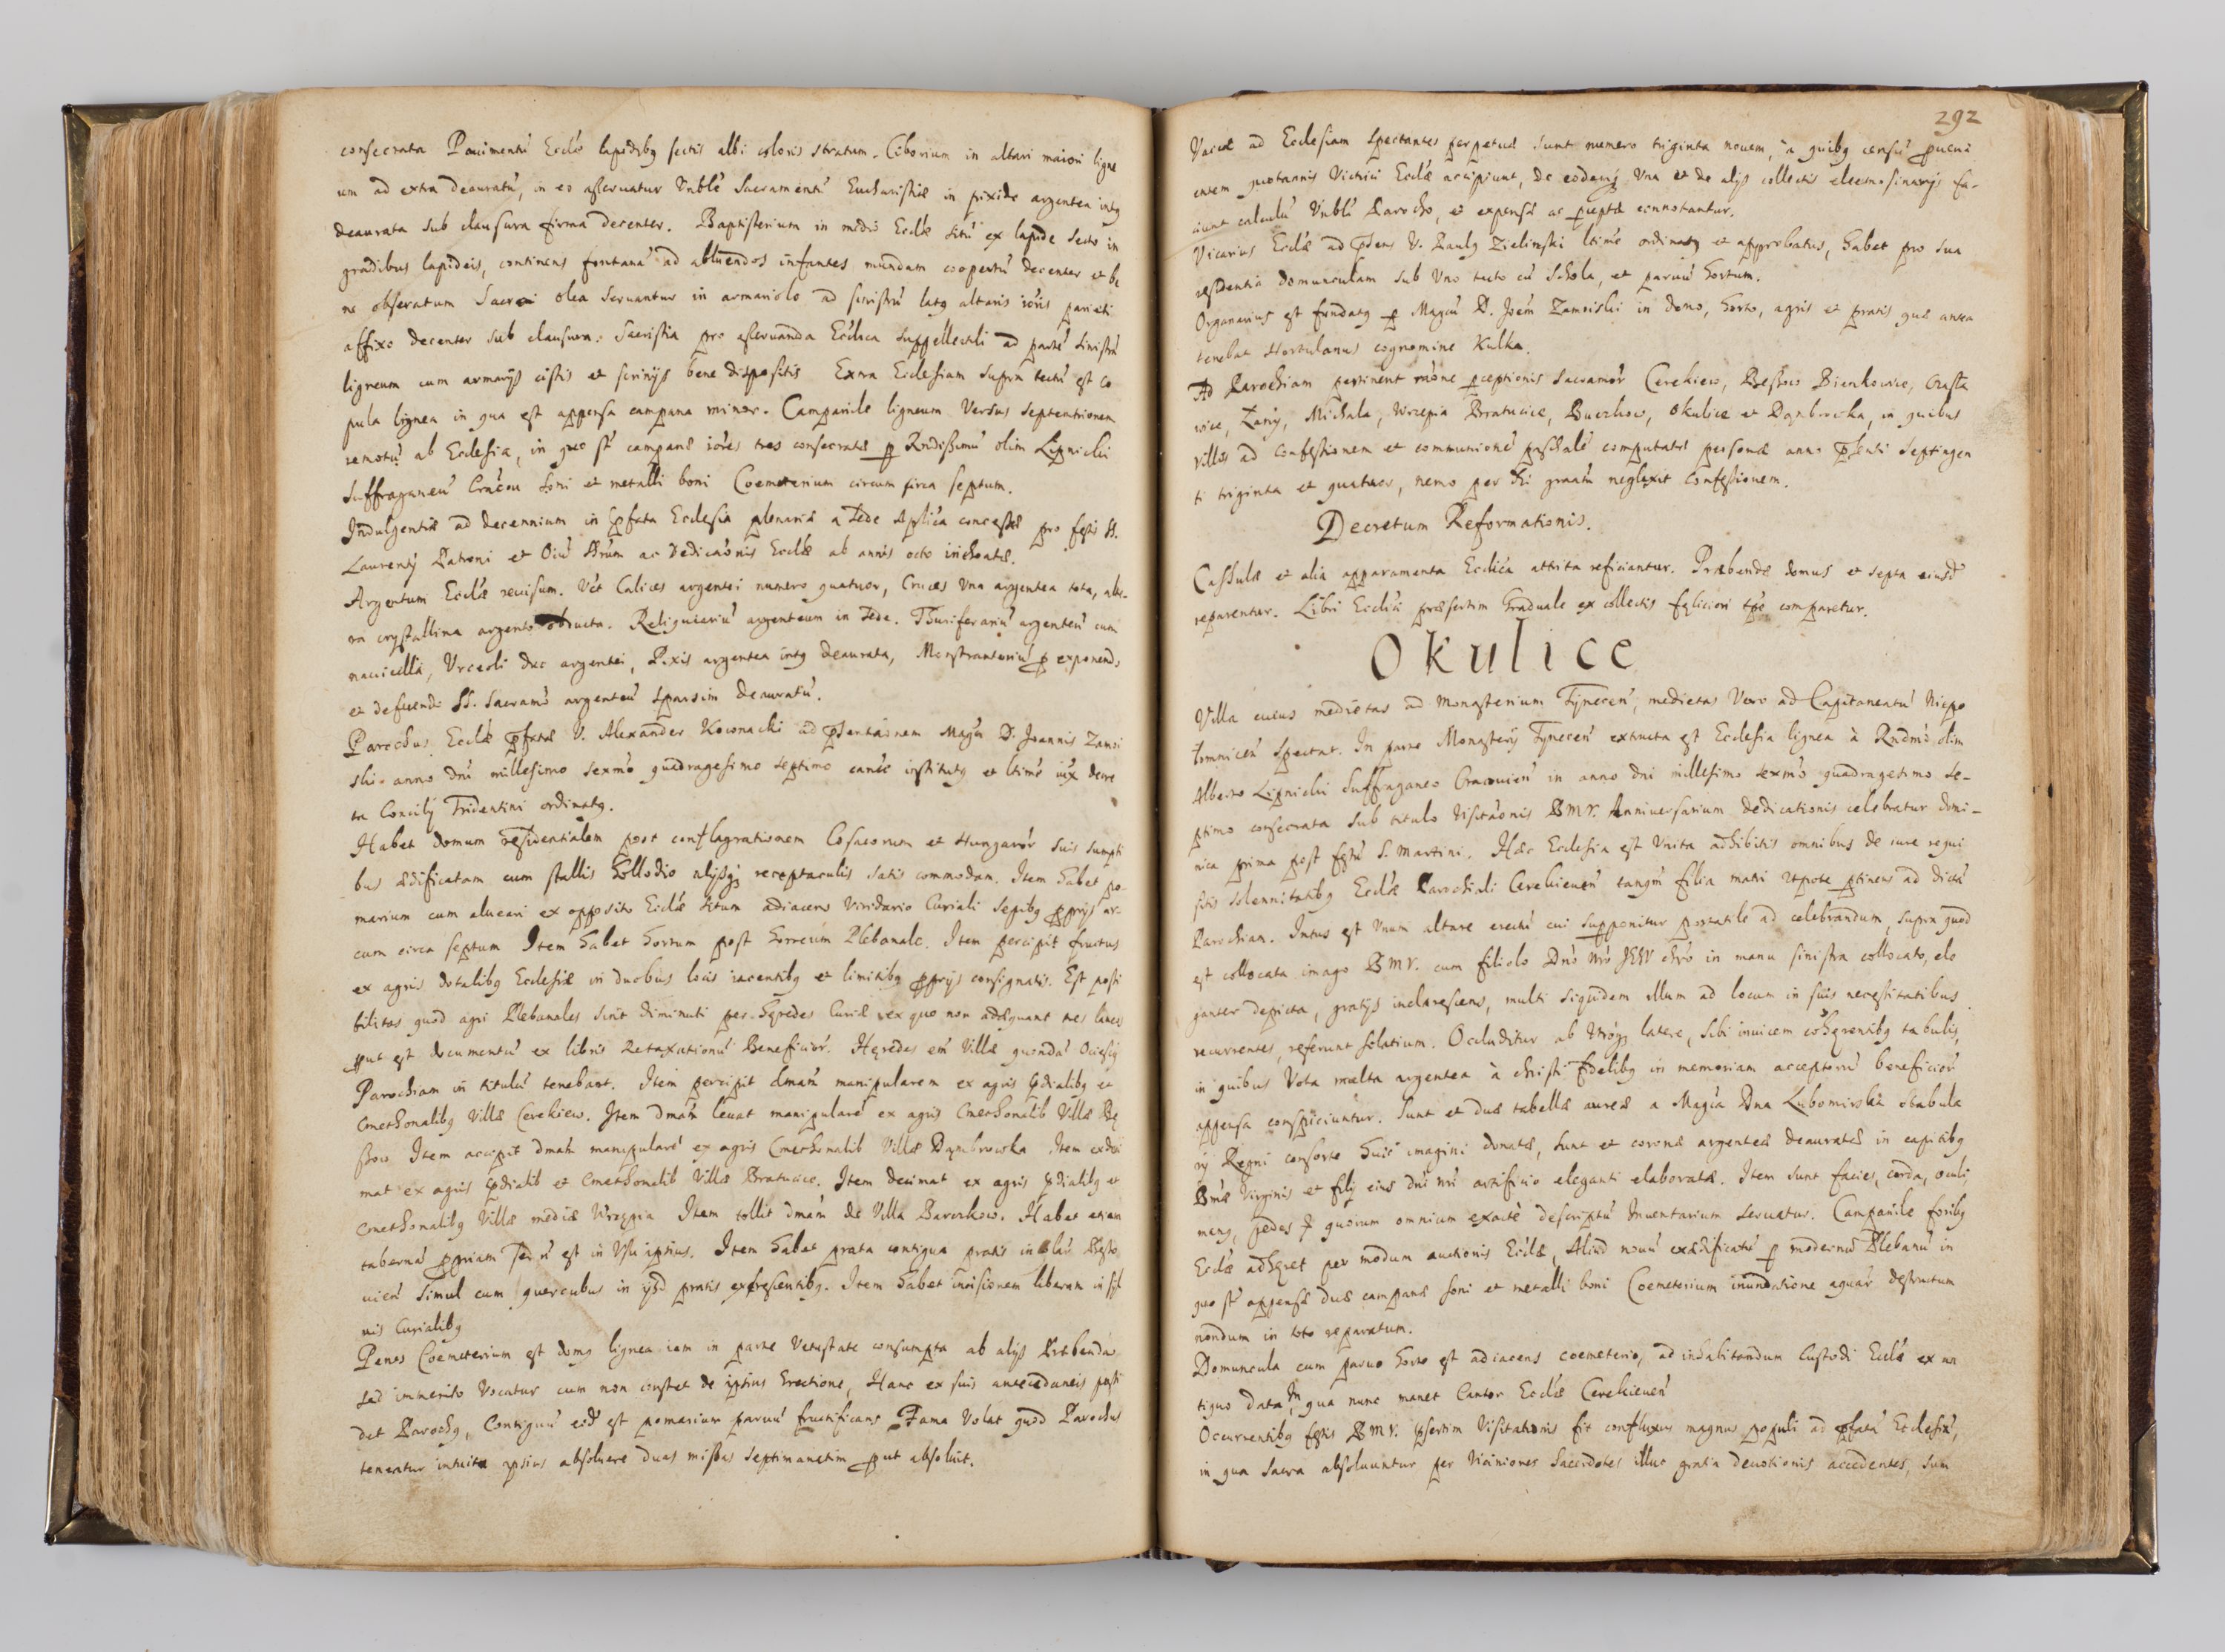 consecrata Pauimentũ Eccłæ lapidibg sectis albi coloris stratum. Ciborium in altari maiori ligne
um ad extra deauratũ, in eo asseruatur Vnblẽ Sacramentũ Eucharistiæ in pixide argentea intg
deaurata sub clausura firma decenter. Baptisterium in medio Eccłæ sitũ ex lapide secto in
gradibus lapideis, continens fontanã ad abluendos infantes mundam coopertũ decenter et be
ne obseratum Sacra olea seruantur in armariolo ad sinistrũ latg altaris ioris parieti
affixo decenter sub clausura. Sacristia pro asseruanda Ecclica suppellectili ad partẽ sinistrã
ligneum cum armarijs cistis et scrinijs bene dispositis Extra Ecclesiam supra tectũ est co
pula lignea in qua est appensa campana minor. Campanile ligneum versus septentrionem
remotũ ab Ecclesia, in quo st campanæ iores tres consecratæ p Rndissimũ olim Lipnicki
Suffraganeũ Cracou soni et metalli boni Coemeterium circum circa septum.
Indulgentiæ ad decennium in pfata Ecclesia plenariæ a Sede Aplica concessæ pro festis S.
Laurentij Patroni et Oiũ SSrum ac Dedicaõnis Eccłæ ab annis octo inchoatæ.
Argentum Eccłæ reuisum. Vĩt Calices argentei numero quatuor, Cruces vna argentea tota, alte-
ra crystallina argento obducta. Reliquiariũ argenteum in Sede. Thuriferariũ argenteũ cum
nauicella, Vrceoli duo argentei, Pixis argentea intg deaurata, Monstrantoriũ p exponendo
et deferendo SS. Sacramto argenteũ sparsim deauratũ.
Parochus Eccłæ pfatæ V. Alexander Kownacki ad pntaõnem Magci D. Joannis Zamoi
ski anno Dni millesimo sexmo quadragesimo septimo canẽ institutg et ltimẽ iux decre
ta Concilij Tridentini ordinatg.
Habet domum residentialem post conflagrationem Cosacorum et Hungarõr suis sumpti
bus ædificatam cum stallis hollodio alijsqʒ receptaculis satis commodam. Item habet po-
marium cum alueari ex opposito Eccłæ situm adiacens viridario Curiali sepibg pprijs ar-
cum circa septum Item habet hortum post horreum Plebanale. Item percipit fructus
ex agris dotalibg Ecclesiæ in duobus locis iacentibg et limitibg pprijs consignatis. Est possi
bilitas quod agri Plebanales sint diminuti per Hæredes Curiæ ex quo non adæquant tres laneos
put est documentũ ex libris Retaxationũ Beneficiõr. Hæredes em Villæ quondã Ociesij
Parochiam in titulũ tenebant. Item percipit dmam manipularem ex agris pdialibg et
Cmethonalibg Villæ Cerekiew. Item dmam leuat manipularẽ ex agris Cmethonalib Villæ Be
ssow Item accipit dmam manipularẽ ex agris Cmethonalib Villæ Dąmbrowka Item exdeci
mat ex agris pdialib et Cmethonalib Villæ Bratucice. Item decimat ex agris pdialibg et
Cmethonalibg Villæ mediæ Wrzępia Item tollit dmam de Villa Barczkow. Habet etiam
tabernã ppriam sed ñ est in Vsu ipsius. Item habet prata contigua pratis incolarũ Besso
uien simul cum quercubus in ijsd pratis exfrescentibg. Item habet incisionem liberam in syl
uis Curialibg
Penes Coemeterium est domg lignea iam in parte vetustate consumpta ab alijs Præbenda
sed immerito vocatur cum non constet de ipsius Erectione, Hanc ex suis antecedaneis possi
det Parochg, Contiguũ eid est pomarium paruũ fructificans. Fama volat quod Parochus
teneatur intuitu ipsius absoluere duas missas septimanatim put absoluit.
292
Vaccæ ad Ecclesiam spectantes perpetuæ sunt numero triginta nouem, à quibg censũ pueni
entem quotannis Victrici Eccłæ accipiunt, de eodemqʒ vna et de alijs collectis eleemosinarijs fa-
ciunt calculũ Vnbli Parocho, et expensæ ac pceptæ connotantur.
Vicarius Eccłæ ad psens V. Paulg Zielinski ltimẽ ordinatg et approbatus, habet pro sua
residentia domunculam sub vno tecto cũ Schola, et paruũ hortum.
Organarius est fundatg p Magcũ D. Joẽm Zamoiski in domo, horto, agris et pratis quæ antea
tenebat Hortulanus cognomine Kulka.
Ad Parochiam pertinent raõne pceptionis Sacramõr Cerekiew, Bessow Bienkowice, Chasta
wice, Zatij, Michala, Wrzępia Bratucice, Buczkow, Okulice et Dąmbrowka, in quibus
villis ad Confessionem et communionẽ paschalẽ computatæ personæ anno psenti septingen
ti triginta et quatuor, nemo per Dei graam neglexit Confessionem.
Decretum Reformationis.
Cassulæ et alia apparamenta Ecclica attrita reficiantur. Præbendæ domus et septa eiusd
reparentur. Libri Ecclici præsertim Graduale ex collectis feliciori tpe comparetur.
Okulice
Villa cuius medietas ad Monasterium Tynecen, medietas vero ad Capitaneatũ Niepo
lomnicen spectat. In parte Monasterij Tynecen extructa est Ecclesia lignea à Rndmo olim
Alberto Lipnicki Suffraganeo Cracouien in anno dni millesimo sexmo quadragesimo se-
ptimo consecrata sub titulo Visitaõnis BMV. Anniuersarium dedicationis celebratur domi-
nica prima post festũ S. Martini. Hæc Ecclesia est vnita adhibitis omnibus de iure requi
sitis solennitatibg Eccłæ Parochiali Cerekieuen tanqm filia matri utpote ptinens ad dictã
Parochiam. Intus est vnum altare erectũ cui supponitur portatile ad celebrandum, supra quod
est collocata imago BMV. cum filiolo Dno nro JESV chro in manu sinistra collocato, ele
ganter depicta, gratijs inclarescens, multi siquidem illum ad locum in suis necessitatibus
recurrentes, referunt solatium. Occluditur ab vtroqʒ latere, sibi inuicem cohærentibg tabulis,
in quibus vota multa argentea à christi fidelibg in memoriam acceptorũ beneficiõr
appensa conspiciuntur. Sunt et duæ tabellæ aureæ a Magca Dna Lubomirska stabula
rij Regni consorte huic imagini donatæ, sunt et coronæ argenteæ deauratæ in capitibg
Btæ Virginis et filij eius dni nri artificio eleganti elaboratæ. Item sunt facies, corda, oculi,
mang, pedes quorum omnium exactè descriptũ Inuentarium seruatur. Campanile foribg
Eccłæ adhæret per modum auctionis Eccłæ, Aliud nouũ exædificatũ p modernũ Plebanũ in
quo st appensæ duæ campanæ soni et metalli boni Coemeterium inundatione aquãr destructum
nondum in toto reparatum.
Domuncula cum paruo horto est adiacens coemeterio, ad inhabitandum Custodi Eccłæ ex an
tiquo data, In qua nunc manet Cantor Eccłæ Cerekieuen
Occurrentibg festis BMV. psertim Visitationis fit confluxus magnus populi ad pfatã Ecclesiã,
in qua sacra absoluuntur per viciniores Sacerdotes illuc gratia deuotionis accedentes, sum